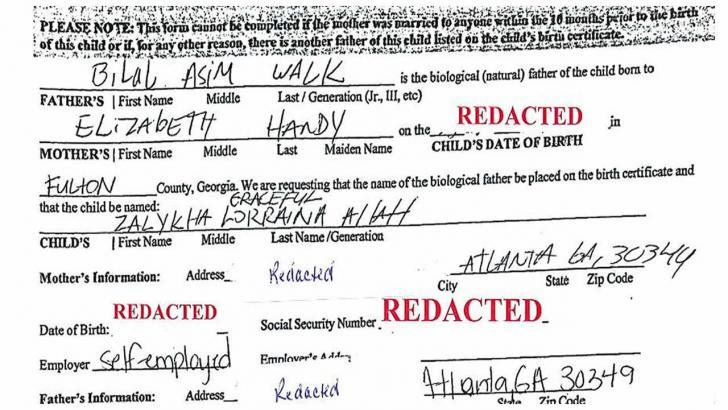 PLEASE NOTE: This form cannot be completed if the mother was married to anyone within the 10 months prior to the birth
of this child or if, for any other reason, there is another father of this child listed on the child's birth certificate.
BILAL ASIM WALK is the biological (natural) father of the child born to
FATHER'S | First Name Middle Last / Generation (Jr., III, etc)
ELIZABETH HANDY on the REDACTED in
MOTHER'S | First Name Middle Last Maiden Name CHILD'S DATE OF BIRTH
FULTON County, Georgia. We are requesting that the name of the biological father be placed on the birth certificate and
that the child be named: GRACEFUL
ZALYKHA LORRAINA Allah
CHILD'S | First Name Middle Last Name /Generation
Mother's Information: Address Redacted ATLANTA GA, 30349
City State Zip Code
Date of Birth: REDACTED Social Security Number REDACTED
Employer self employed Employer's
Father's Information: Address Redacted Atlanta, GA 30349
State Zip Code